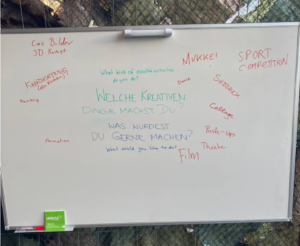 3D Kunst
MUKKEL
SPORT
COMPETITION
What kind of creative activities
do you do?
WELCHE KREATIVEN
DINGE MACHST DU?
Painting
Dance
College
WAS WÜRDEST
DU GERNE MACHEN?
What would you like to do?
Animation
Push-ups
Theatre
Film